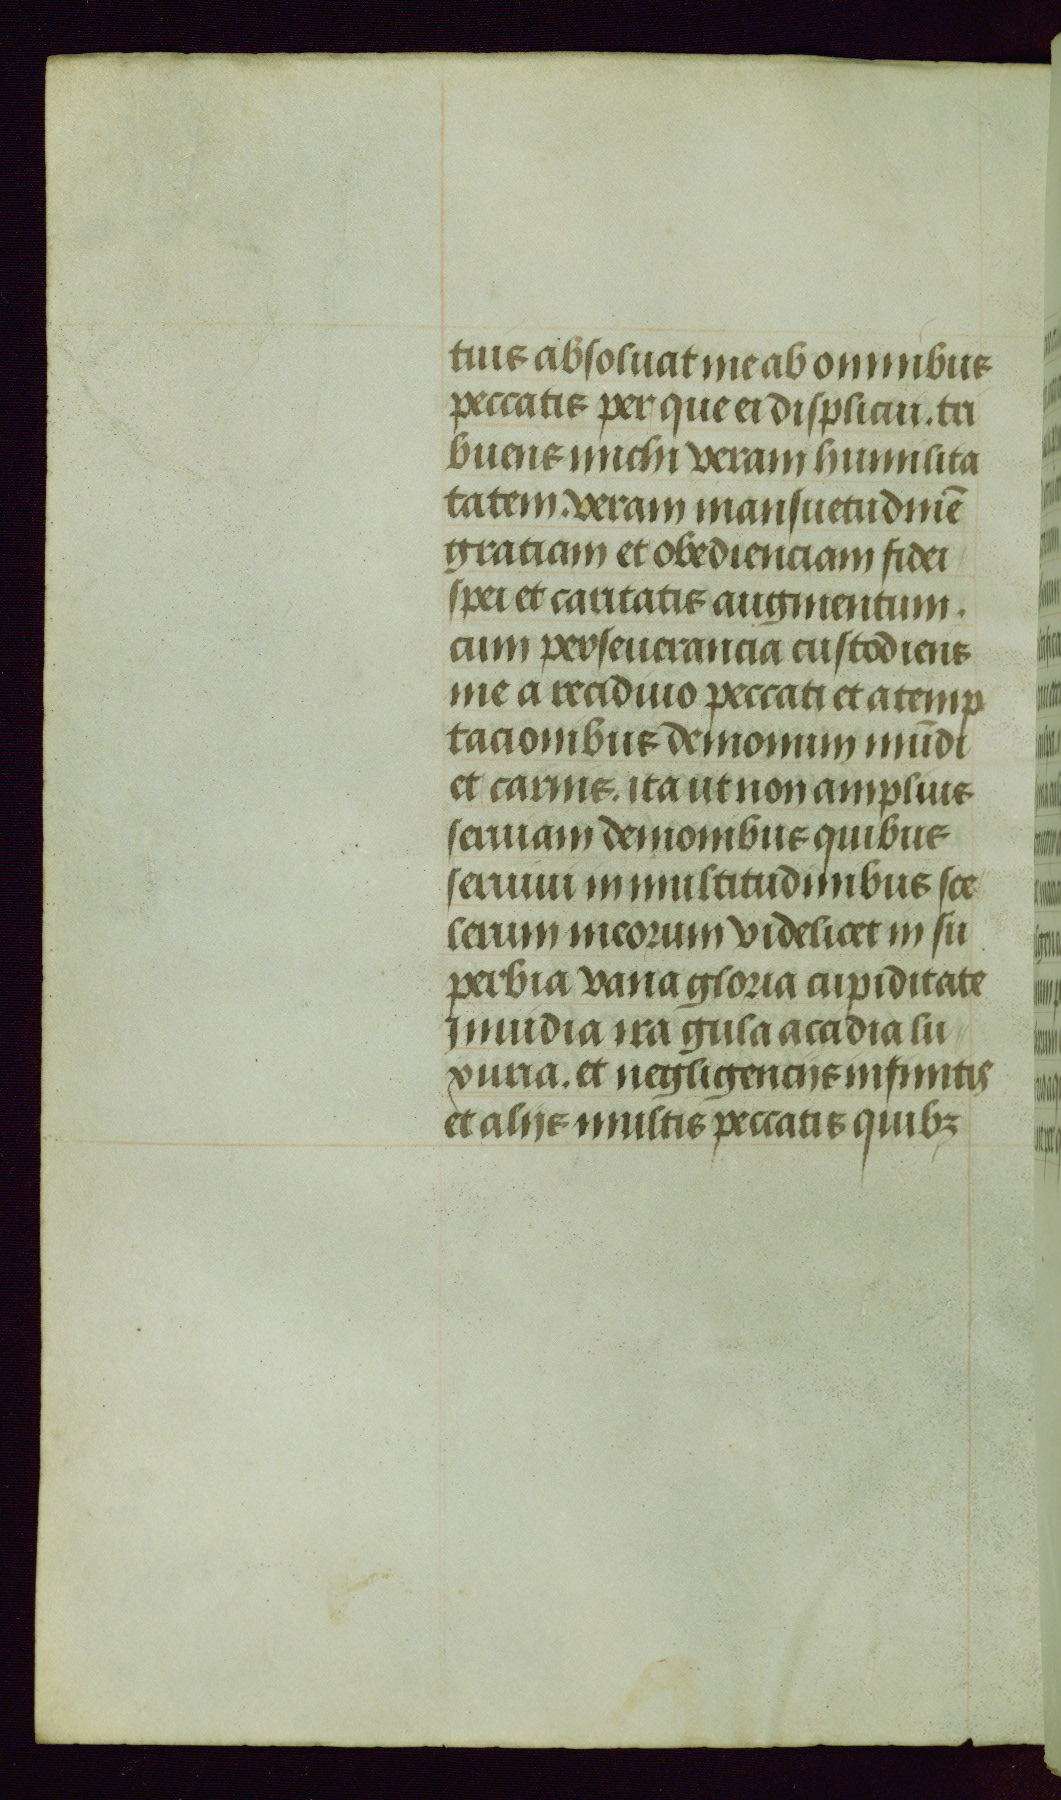 tuus absoluat me ab omnibus
peccatis per que ei displicui. tri
buens michi veram humilita
tatem. veram mansuetudinē
gratiam et obedienciam fidei
spei et caritatis augmentum.
cum perseuerancia custodiens
me a recidiuo peccati et a temp
tacionibus demonum mūdi
et carnis. ita ut non amplius
seruiam demonibus quibus
seruiui in multitudinibus sce
lerum meorum videlicet in su
perbia vana gloria cupiditate
Inuidia ira gula accidia lu
xuria. et negligencijs infinitis
et alijs multis peccatis quibꝫ